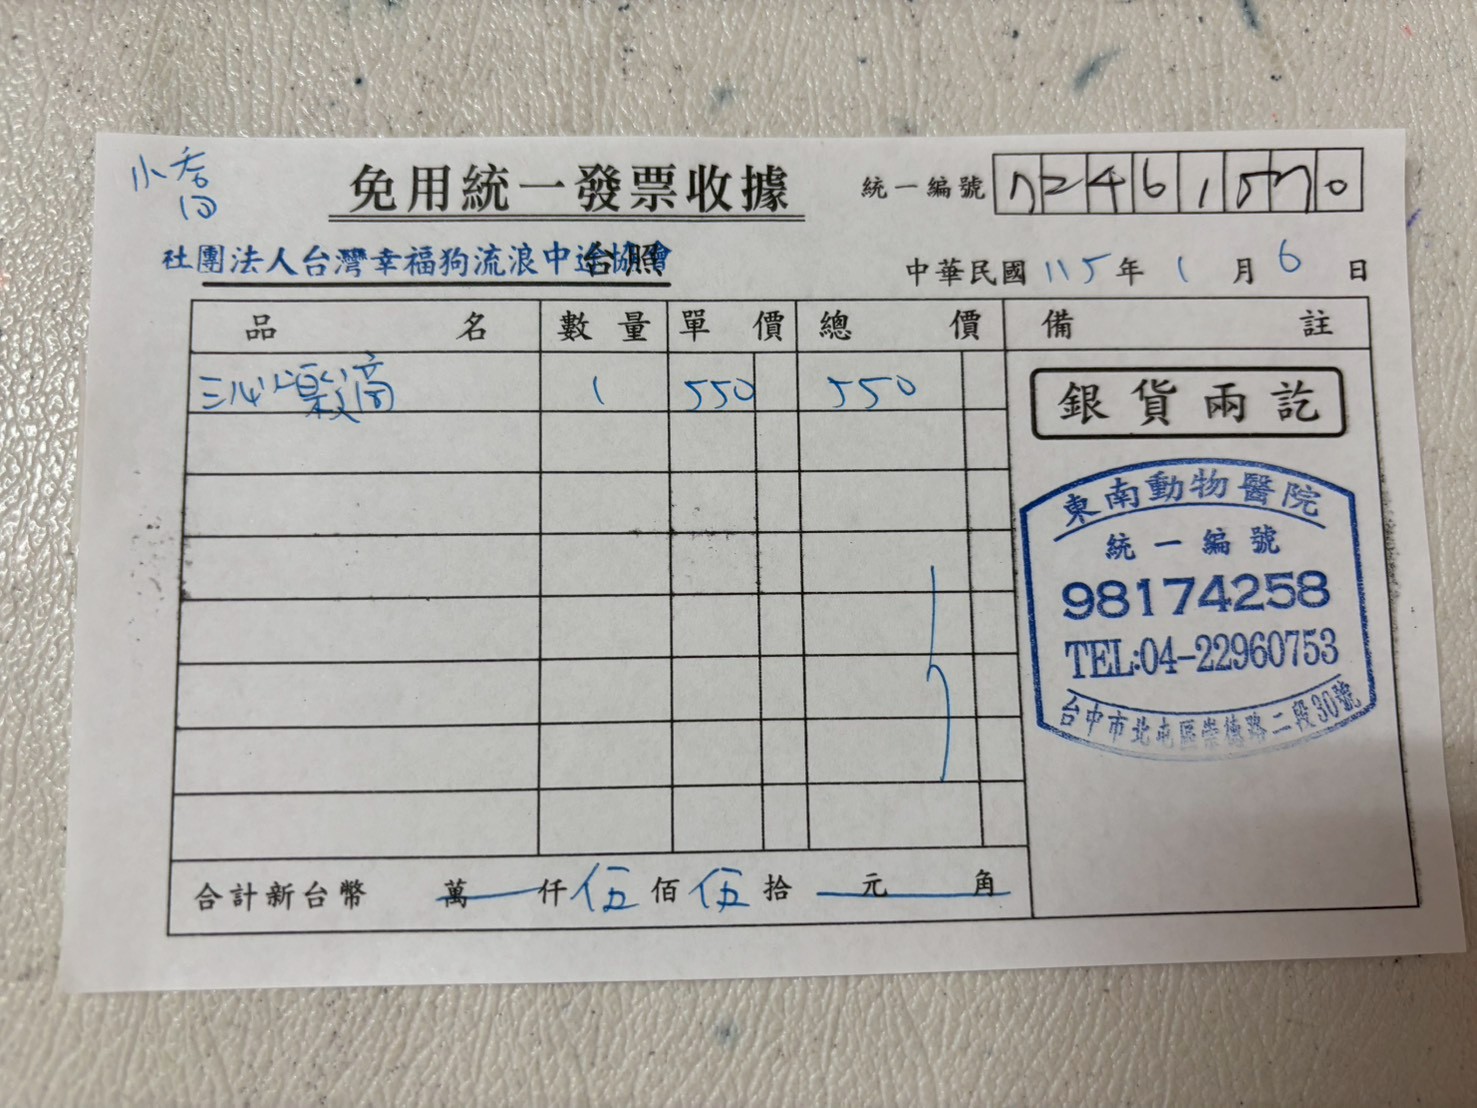 小喬
免用統一發票收據
統一編號 72461570
社團法人台灣幸福狗流浪中途協會
台照
中華民國 115 年 1 月 6 日
品名 數量 單價 總價 備註
三沁 滴 1 550 550
銀貨兩訖
東南動物醫院
統一編號
98174258
TEL:04-22960753
台中市北屯區崇德路二段30號
合計新台幣 萬 仟 伍 佰 伍 拾 元 角